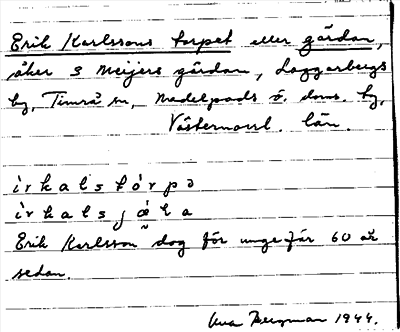 Erik Karlssons torpet eller gården,
åker S Meijers gården, Laggarbergs
by, Timrå sn, Medelpads ö. doms. by,
Västernorrl. län.
ìrkalstórpə
ìrkalsjǻ
Erik Karlsson dog för ungefär 60 år
sedan.
Bergman 1944.